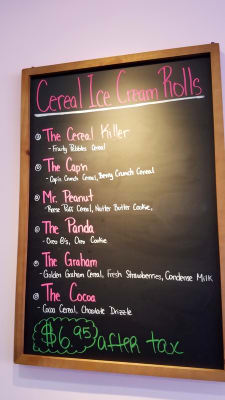 Cereal Ice Cream Rolls
The Cereal Killer
- Fruity Pebbles Cereal
The Cap'n
- Cap'n Crunch Cereal, Berry Crunch Cereal
Mr. Peanut
- Reese Puff Cereal, Nutter Butter Cookie,
The Panda
- Oreo O's, Oreo Cookie
The Graham
- Golden Graham Cereal, Fresh Strawberries, Condense Milk
The Cocoa
- Cocoa Cereal, Chocolate Drizzle
$6.95 after tax